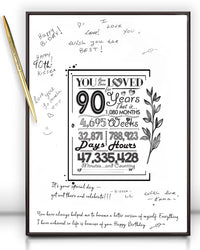 Happy
B-Day!
I
LOVE
YOU.
Love!
Wish you the
BEST!
Happy
90th
Kisses
YOU'VE LOVED
90 For
Years
That is
1,080 MONTHS
4,695 Weeks
32,871 788,923
Days Hours
47,335,428
Minutes... and Counting
It's your special day -
get out there and celebrate!!!
You have always helped me to become a better version of myself. Everything
I have achieved in life is because of you. Happy Birthday.